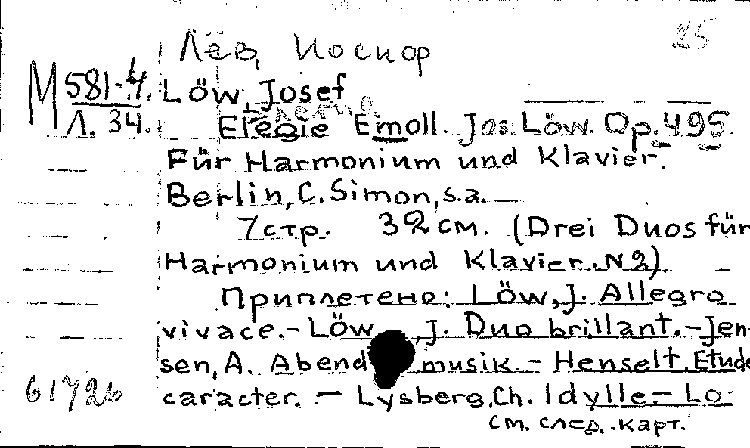 Лёв, Иосиф
25
М 581-4
Л. 34.
Löw, Josef
Elegie Emoll. Jos. Löw. Op. 495.
Für Harmonium und Klavier.
Berlin, C. Simon, s.a.
7 стр. 32 см. (Drei Duos für
Harmonium und Klavier. N2)
Приплетено: Löw, J. Allegro
vivace. - Löw, J. Duo brillant. - Jen-
sen, A. Abend musik. - Henselt. Etude
caracter. - Lysberg, Ch. Idylle. - Lo-
61726
см. след. карт.